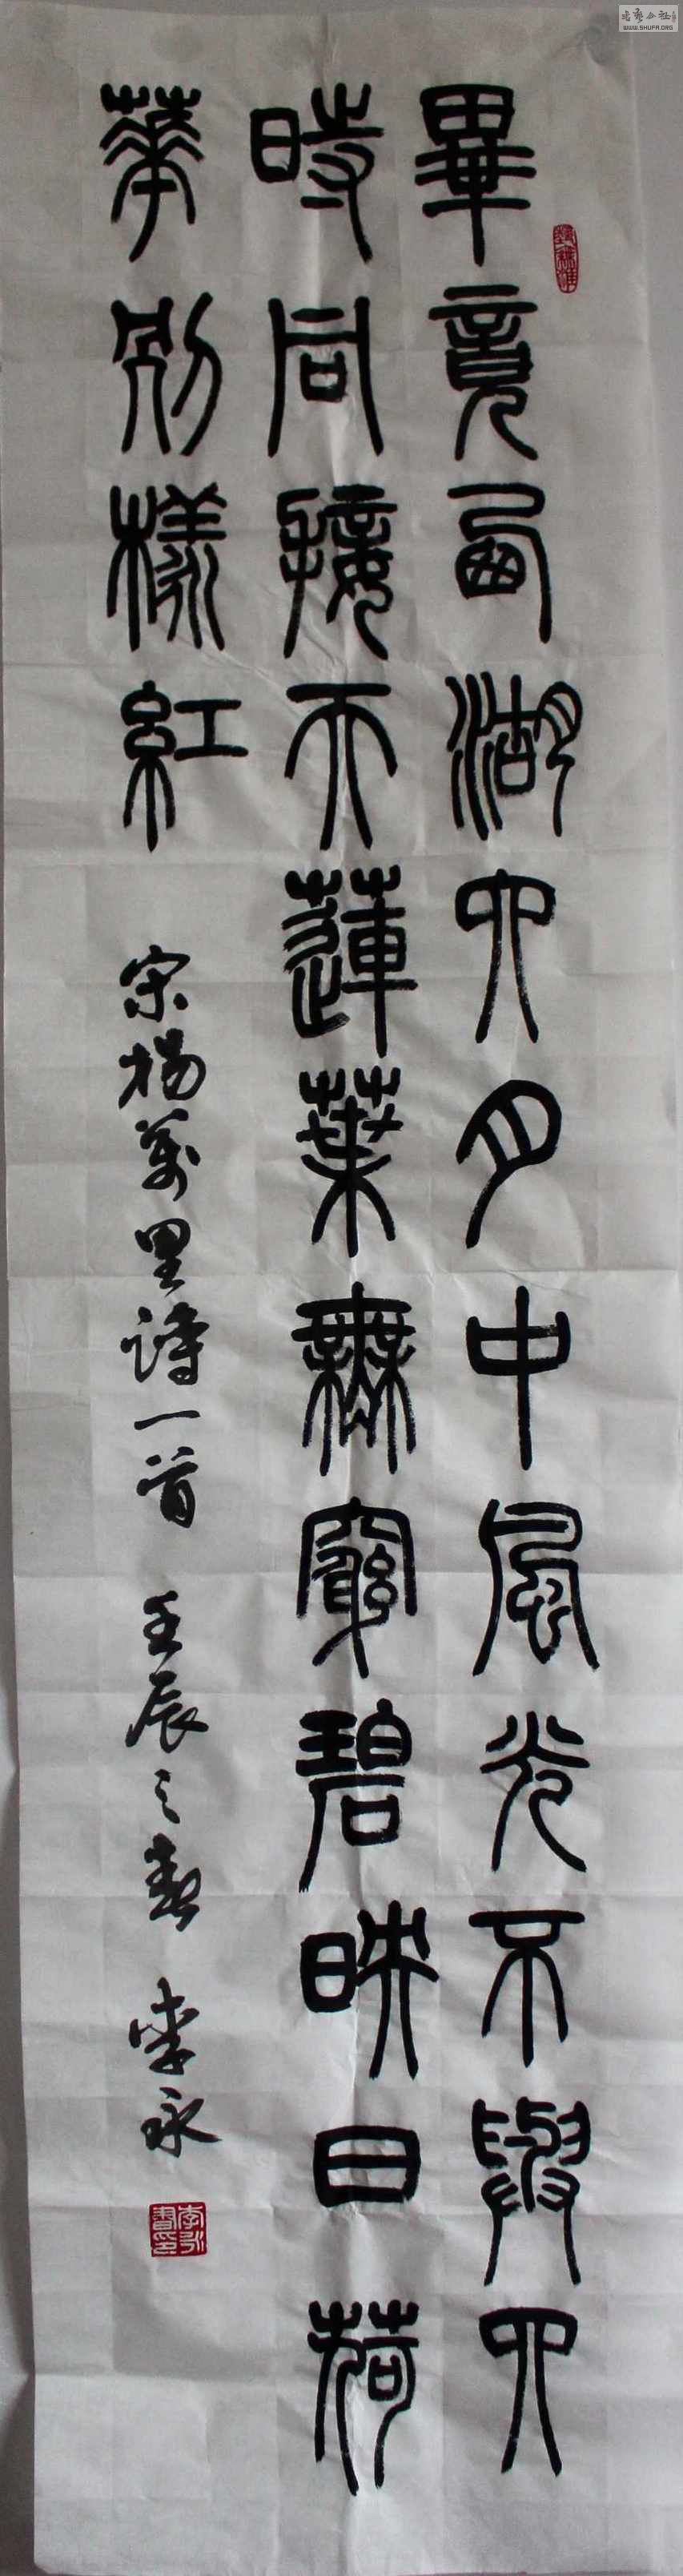 畢竟西湖六月中風光不與四
時同接天蓮葉無窮碧映日荷
華別樣紅
宋楊萬里詩一首 壬辰之春 李永
李永書印
書藝公社
WWW.SHUFA.ORG